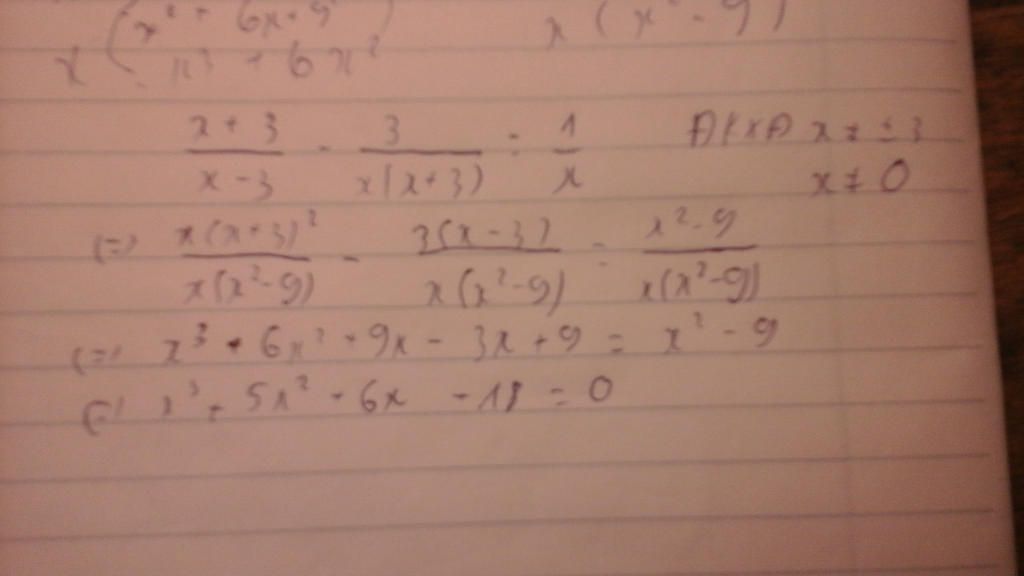 x ( x² + 6x + 9 )    x ( x² - 9 )
x³ + 6x²
(x + 3)/(x - 3) - 3/(x(x+3)) = 1/x    ĐKXĐ x ≠ ± 3
x ≠ 0
(=) (x(x+3)²)/(x(x²-9)) - (3(x-3))/(x(x²-9)) = (x²-9)/(x(x²-9))
(=) x³ + 6x² + 9x - 3x + 9 = x² - 9
(=) x³ + 5x² + 6x + 18 = 0